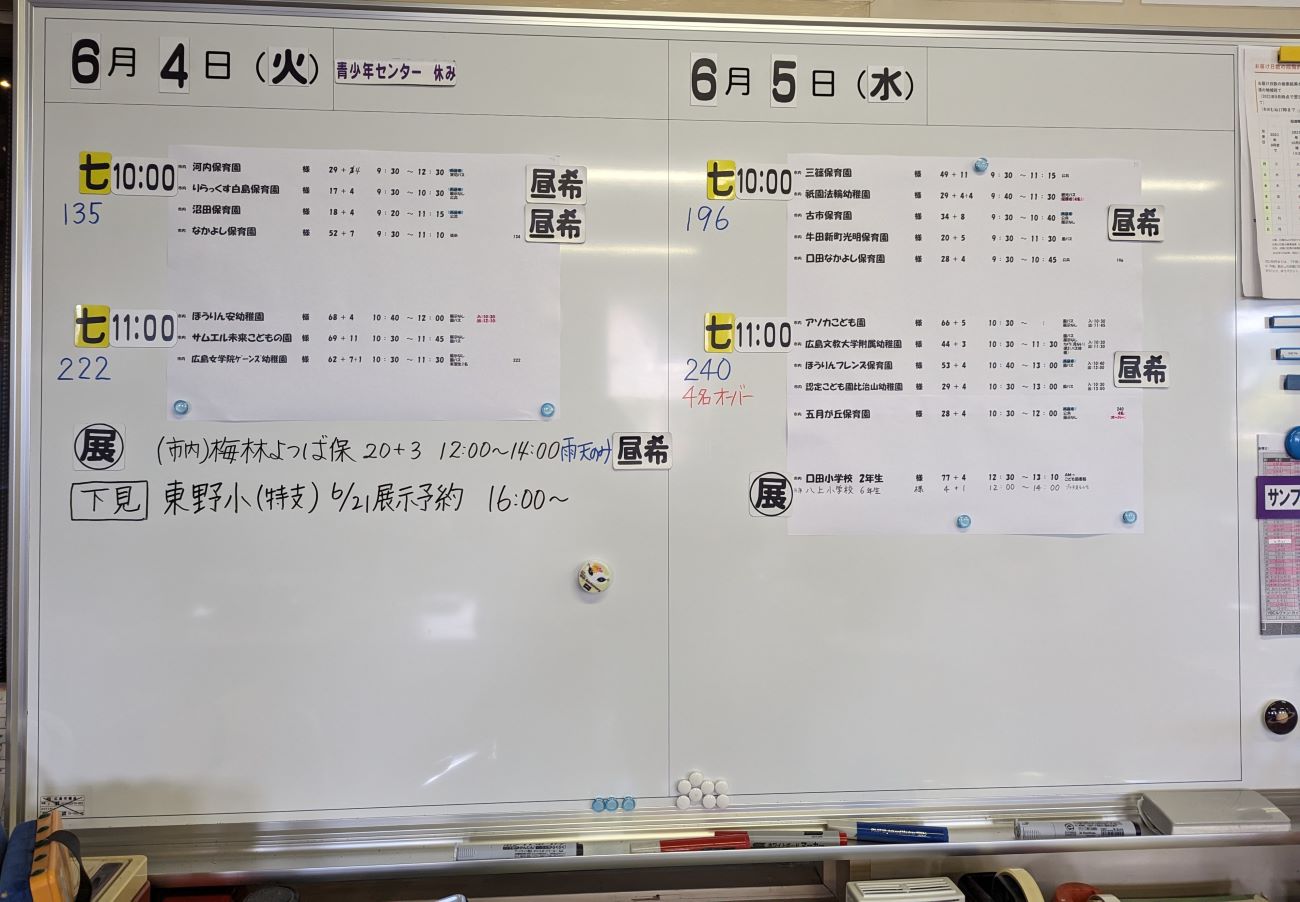 6月 4日 (火)
青少年センター 休み
七 10:00
135
市内 河内保育園 様 9:30 ~ 12:30
市内 りらっくす白島保育園 様 17+4 9:30 ~ 10:30
市内 沼田保育園 様 18+4 9:20 ~ 11:15
市内 なかよし保育園 様 52+7 9:30 ~ 11:10
昼希
昼希
七 11:00
222
市内 ほうりん安幼稚園 様 68+4 10:40 ~ 12:00
市内 サムエル未来こどもの園 様 69+11 10:30 ~ 11:45
市内 広島女学院ゲーンズ幼稚園 様 62+7+1 10:30 ~ 11:30 222
展 (市内)梅林よつば保 20+3 12:00~14:00 雨天のみ 昼希
下見 東野小(特支) 6/21展示予約 16:00~
6月 5日 (水)
七 10:00
196
市内 三篠保育園 様 49+11 9:30 ~ 11:15
市内 祇園法輪幼稚園 様 29+4+4 9:40 ~ 11:30
市内 古市保育園 様 34+8 9:30 ~ 10:40
市内 牛田新町光明保育園 様 20+5 9:30 ~ 11:30
市内 口田なかよし保育園 様 28+4 9:30 ~ 10:45 196
昼希
七 11:00
240
4名オーバー
市内 アソカこども園 様 66+5 10:30 ~ :
市内 広島文教大学附属幼稚園 様 44+3 10:30 ~ 11:30
市内 ほうりんフレンズ保育園 様 53+4 10:40 ~ 13:00
市内 認定こども園比治山幼稚園 様 29+4 10:30 ~ 13:00
市内 五月が丘保育園 様 28+4 10:30 ~ 12:00
昼希
展
市内 口田小学校 2年生 様 77+4 12:30 ~ 13:10
八上小学校 6年生 様 4+1 12:00 ~ 14:00
サンフ